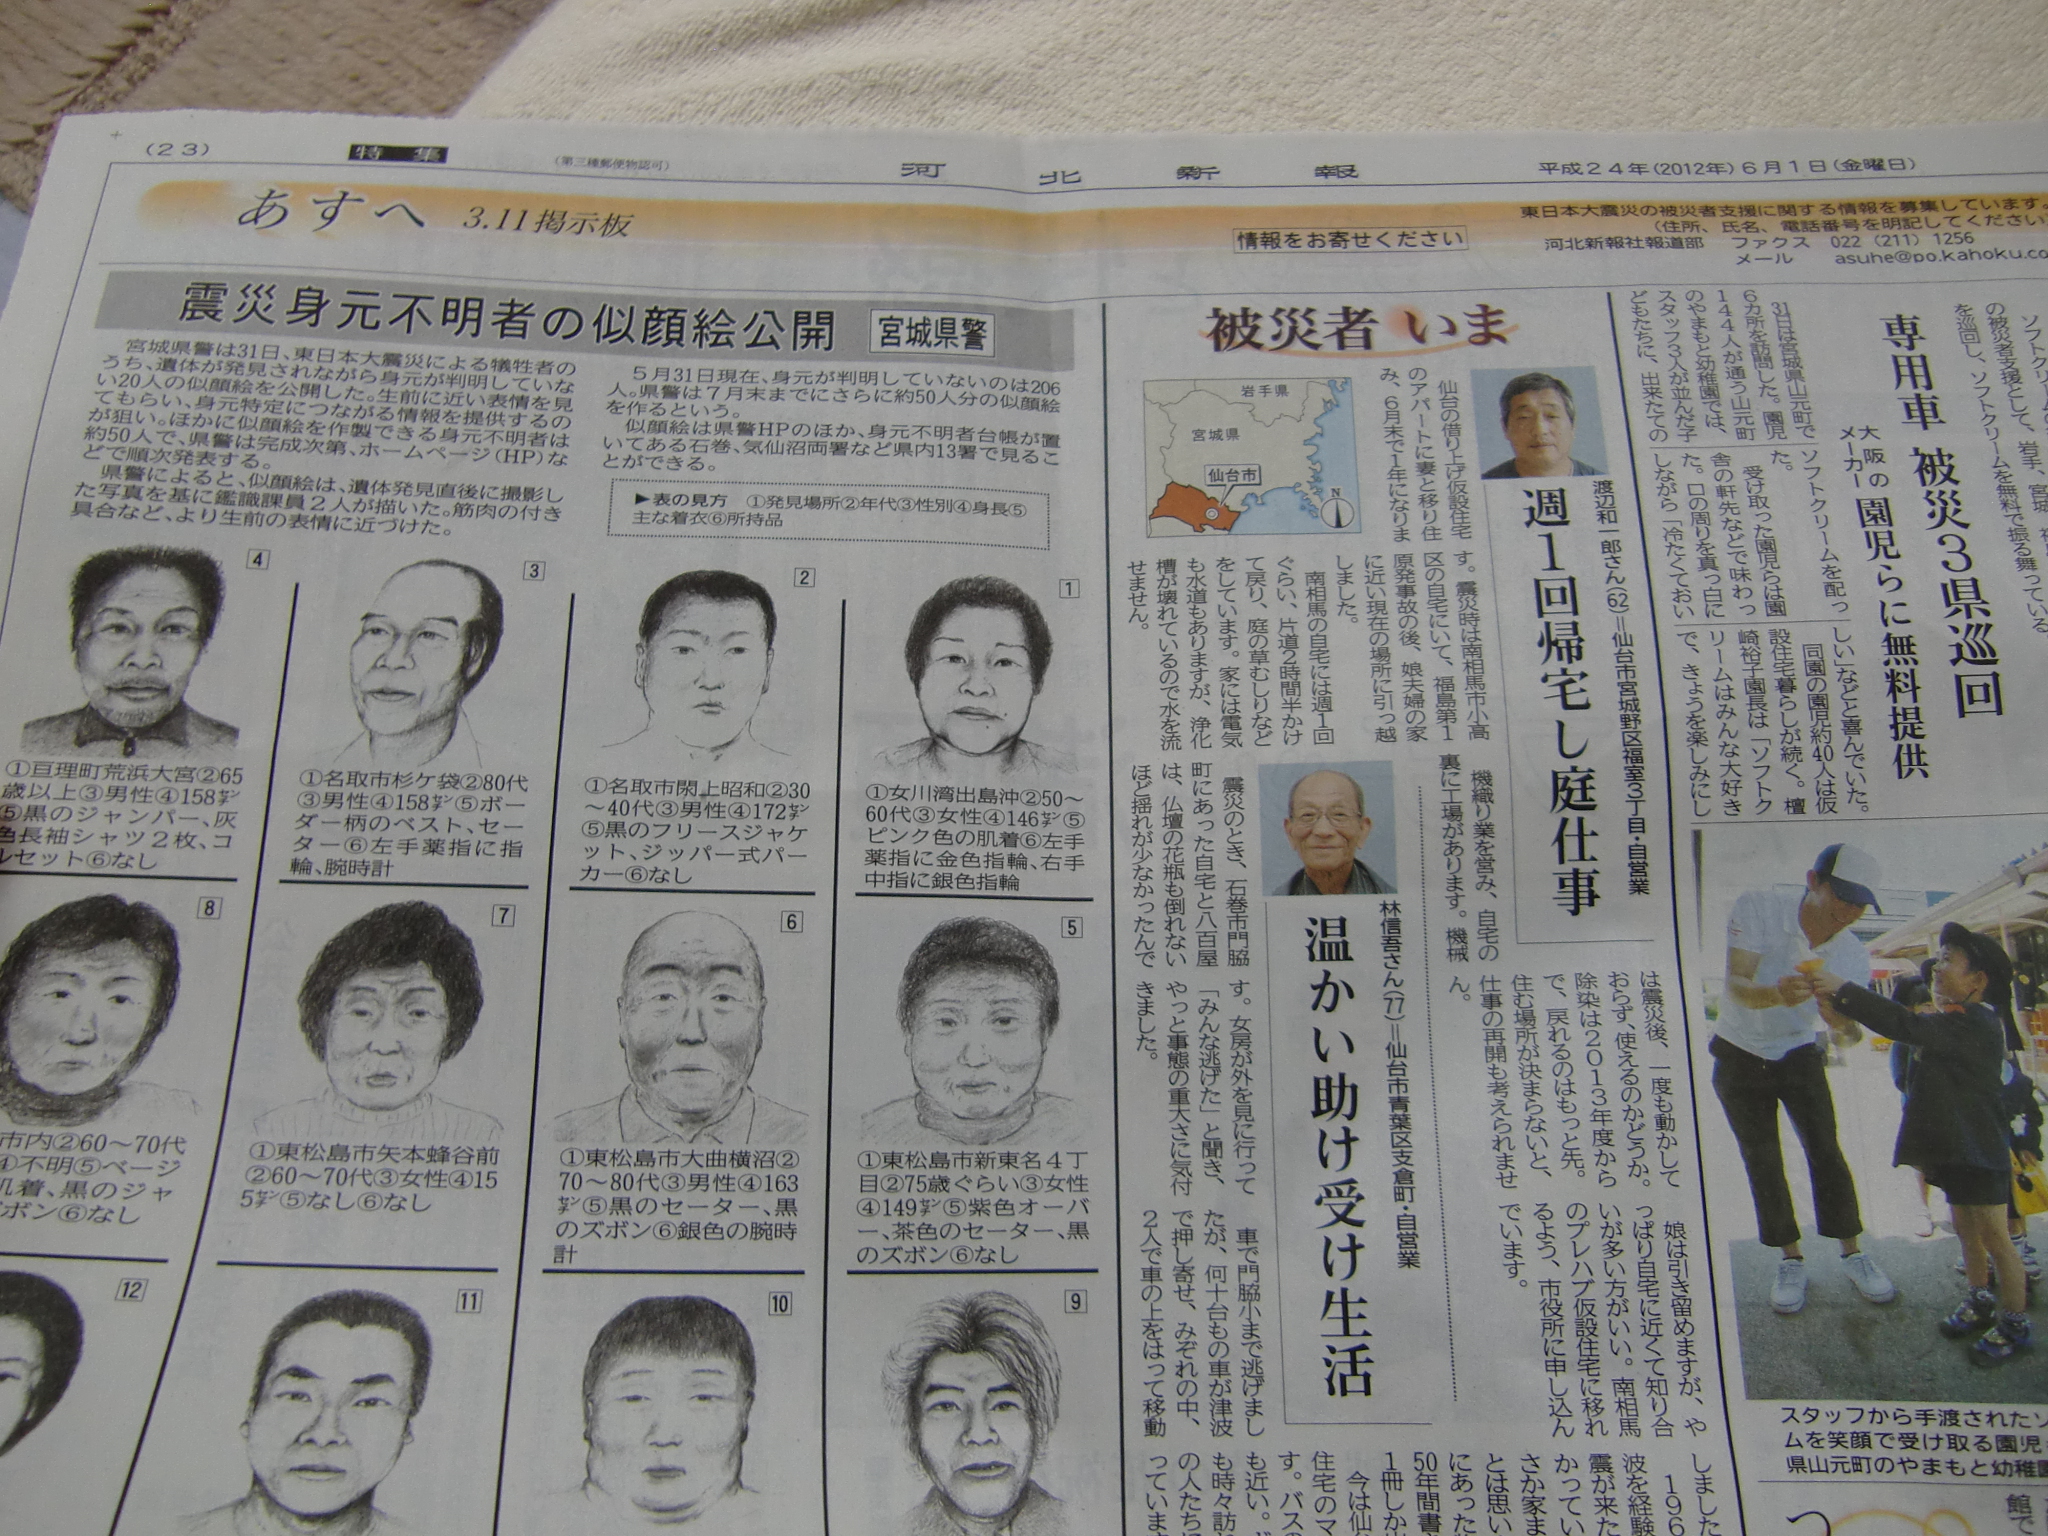 (23)
特集
(第三種郵便物認可)
河北新報
平成24年(2012年)6月1日(金曜日)
あすへ 3.11掲示板
情報をお寄せください
東日本大震災の被災者支援に関する情報を募集しています。
(住所、氏名、電話番号を明記してください)
河北新報社報道部 ファクス 022(211)1256
メール asuhe@po.kahoku.co
震災身元不明者の似顔絵公開 宮城県警
宮城県警は31日、東日本大震災による犠牲者の
うち、遺体が発見されながら身元が判明していな
い20人の似顔絵を公開した。生前に近い表情を見
てもらい、身元特定につながる情報を提供するの
が狙い。ほかに似顔絵を作製できる身元不明者は
約50人で、県警は完成次第、ホームページ(HP)な
どで順次発表する。
県警によると、似顔絵は、遺体発見直後に撮影し
た写真を基に鑑識課員2人が描いた。筋肉の付き
具合など、より生前の表情に近づけた。
5月31日現在、身元が判明していないのは206
人。県警は7月末までにさらに約50人分の似顔絵
を作るという。
似顔絵は県警HPのほか、身元不明者台帳が置
いてある石巻、気仙沼両署など県内13署で見るこ
とができる。
▶表の見方 ①発見場所②年代③性別④身長⑤
主な着衣⑥所持品
1
①女川湾出島沖②50〜
60代③女性④146㌢⑤
ピンク色の肌着⑥左手
薬指に金色指輪、右手
中指に銀色指輪
2
①名取市閖上昭和②30
〜40代③男性④172㌢
⑤黒のフリースジャケ
ット、ジッパー式パー
カー⑥なし
3
①名取市杉ケ袋②80代
③男性④158㌢⑤ボー
ダー柄のベスト、セー
ター⑥左手薬指に指
輪、腕時計
4
①亘理町荒浜大宮②65
歳以上③男性④158㌢
⑤黒のジャンパー、灰
色長袖シャツ2枚、コ
ルセット⑥なし
5
①東松島市新東名4丁
目②75歳ぐらい③女性
④149㌢⑤紫色オーバ
ー、茶色のセーター、黒
のズボン⑥なし
6
①東松島市大曲横沼②
70〜80代③男性④163
㌢⑤黒のセーター、黒
のズボン⑥銀色の腕時
計
7
①東松島市矢本蜂谷前
②60〜70代③女性④15
5㌢⑤なし⑥なし
8
市内②60〜70代
④不明⑤ベージ
肌着、黒のジャ
ズボン⑥なし
9
10
11
12
被災者 いま
岩手県
宮城県
仙台市
N
渡辺和一郎さん(62)=仙台市宮城野区福室3丁目・自営業
週1回帰宅し庭仕事
仙台の借り上げ仮設住宅
のアパートに妻と移り住
み、6月末で1年になりま
す。震災時は南相馬市小高
区の自宅にいて、福島第1
原発事故の後、娘夫婦の家
に近い現在の場所に引っ越
しました。
南相馬の自宅には週1回
ぐらい、片道2時間半かけ
て戻り、庭の草むしりなど
をしています。家には電気
も水道もありますが、浄化
槽が壊れているので水を流
せません。
機織り業を営み、自宅の
裏に工場があります。機械
は震災後、一度も動かして
おらず、使えるのかどうか。
除染は2013年度から
で、戻れるのはもっと先。
住む場所が決まらないと、
仕事の再開も考えられませ
ん。
娘は引き留めますが、や
っぱり自宅に近くて知り合
いが多い方がいい。南相馬
のプレハブ仮設住宅に移れ
るよう、市役所に申し込ん
でいます。
林信吾さん(77)=仙台市青葉区支倉町・自営業
温かい助け受け生活
震災のとき、石巻市門脇
町にあった自宅と八百屋
は、仏壇の花瓶も倒れない
ほど揺れが少なかったんで
す。女房が外を見に行って
「みんな逃げた」と聞き、
やっと事態の重大さに気付
きました。
車で門脇小まで逃げまし
たが、何十台もの車が津波
で押し寄せ、みぞれの中、
2人で車の上をはって移動
しました
196
波を経験
震が来た
かってい
さか家ま
とは思い
にあった
50年間書
1冊しか
今は仙
住宅のマ
す。バスの
も近い。
も時々訪
の人たち
っていま
専用車 被災3県巡回
大阪のメーカー 園児らに無料提供
ソフトクリーム
の被災者支援として、岩手、宮城、福
を巡回し、ソフトクリームを無料で振る舞っている
31日は宮城県山元町で
6カ所を訪問した。園児
144人が通う山元町
のやまもと幼稚園では、
スタッフ3人が並んだ子
どもたちに、出来たての
ソフトクリームを配っ
た。
受け取った園児らは園
舎の軒先などで味わっ
た。口の周りを真っ白に
しながら「冷たくておい
しい」などと喜んでいた。
同園の園児約40人は仮
設住宅暮らしが続く。檀
崎裕子園長は「ソフトク
リームはみんな大好き
で、きょうを楽しみにし
スタッフから手渡されたソ
ムを笑顔で受け取る園児
県山元町のやまもと幼稚園